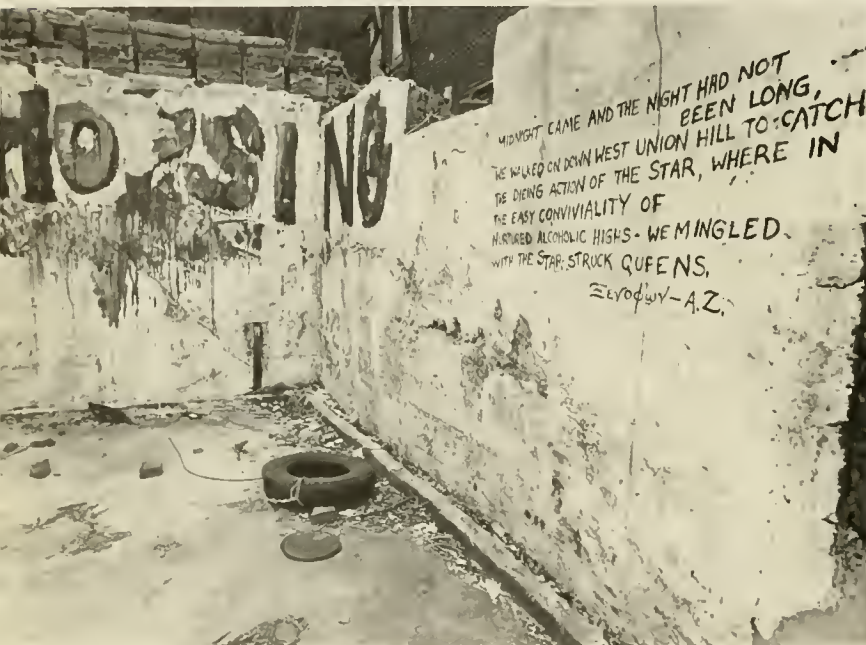 HOUSING
MIDNIGHT CAME AND THE NIGHT HAD NOT
BEEN LONG,
WE WALKED ON DOWN WEST UNION HILL TO CATCH
THE DIEING ACTION OF THE STAR, WHERE IN
THE EASY CONVIVIALITY OF
NURTURED ALCOHOLIC HIGHS - WE MINGLED
WITH THE STAR-STRUCK QUEENS.
Ξενοφων - A.Z.